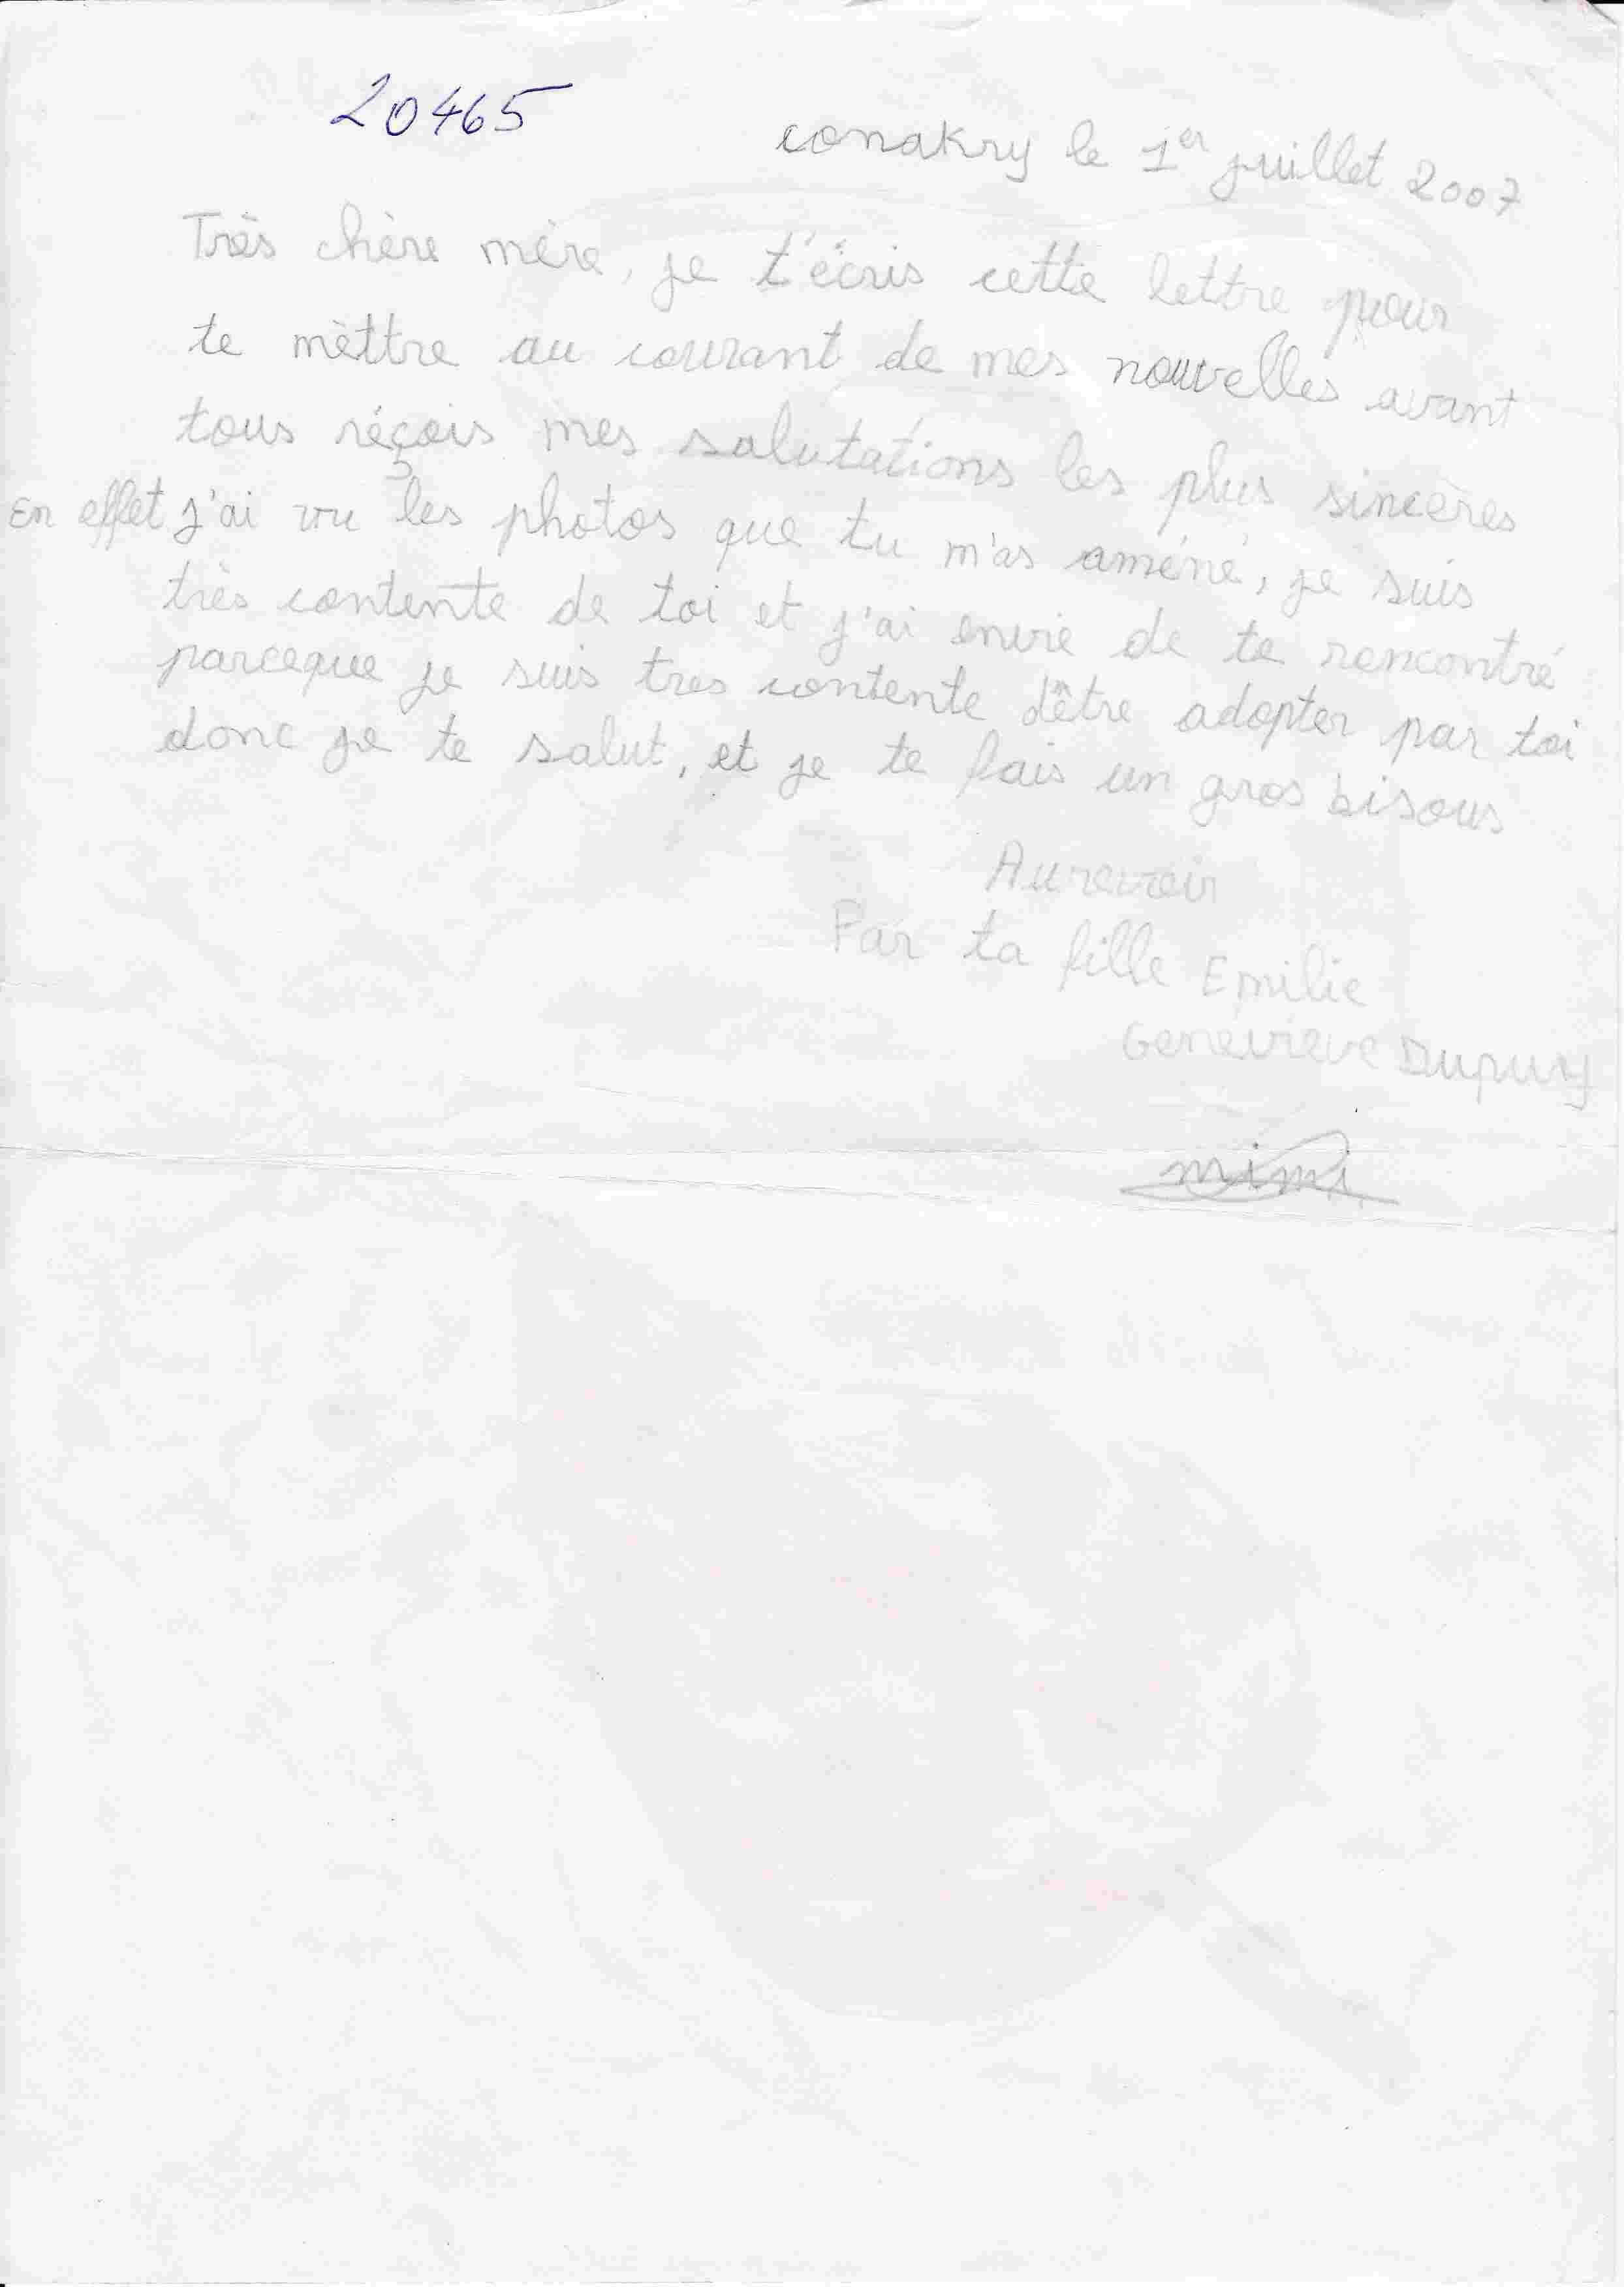 20465
conakry le 1er juillet 2007
Très chère mère, je t'écris cette lettre pour
te mèttre au courant de mes nouvelles avant
tous réçois mes salutations les plus sincères
En effet j'ai vu les photos que tu m'as améné, je suis
très contente de toi et j'ai envie de te rencontré
parceque je suis tres contente d'être adopter par toi
donc je te salut, et je te fais un gros bisous
Aurevoir
Par ta fille Emilie
Genevieve Dupuy
mimi